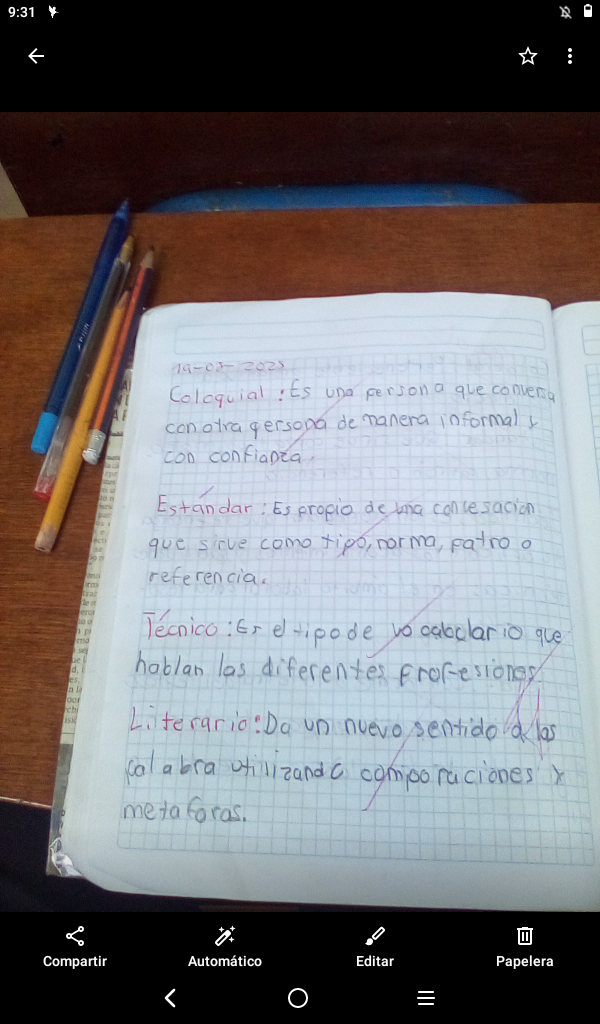 9:31
19-03-2025
Coloquial: Es una persona que conversa
con otra persona de manera informal y
con confianza.
Estándar: Es propio de una convesacion
que sirve como tipo, norma, patro o
referencia.
Técnico: Es el tipo de vocabulario que
hablan las diferentes profesiones.
Literario: Da un nuevo sentido a las
palabra utilizando comparaciones y
metaforas.
Compartir
Automático
Editar
Papelera